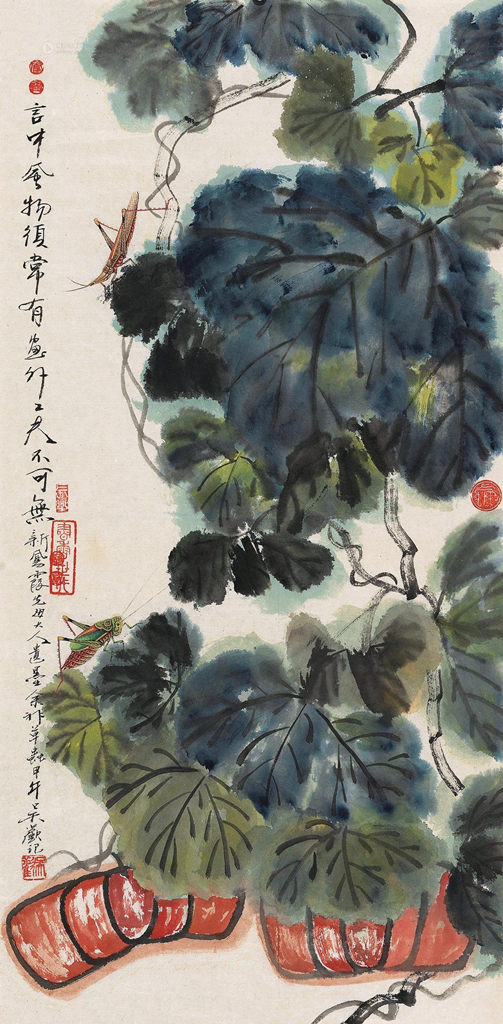 言中風物須常有畫外工夫不可無
新鳳霞先母大人遺墨余補草蟲甲午吳歡記